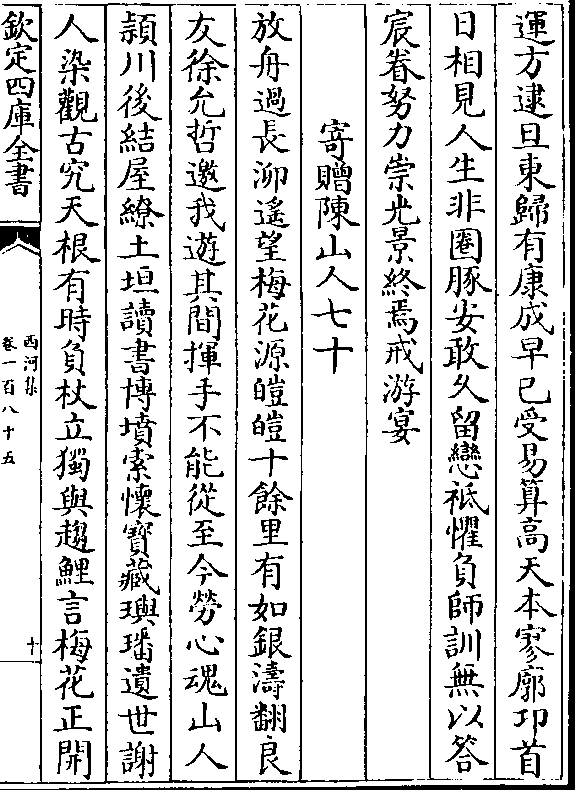 運方逮旦東歸有康成早已受易算高天本寥廓卬首
日相見人生非圈豚安敢久留戀祗懼負師訓無以答
宸眷努力崇光景終焉戒游宴
寄贈陳山人七十
放舟過長泖遙望梅花源皚皚十餘里有如銀濤翻良
友徐允哲邀我遊其間揮手不能從至今勞心魂山人
潁川後結屋繚土垣讀書博墳索懷寶藏璵璠遺世謝
人染觀古究天根有時負杖立獨與趨鯉言梅花正開
欽定四庫全書
西河集
卷一百八十五
十